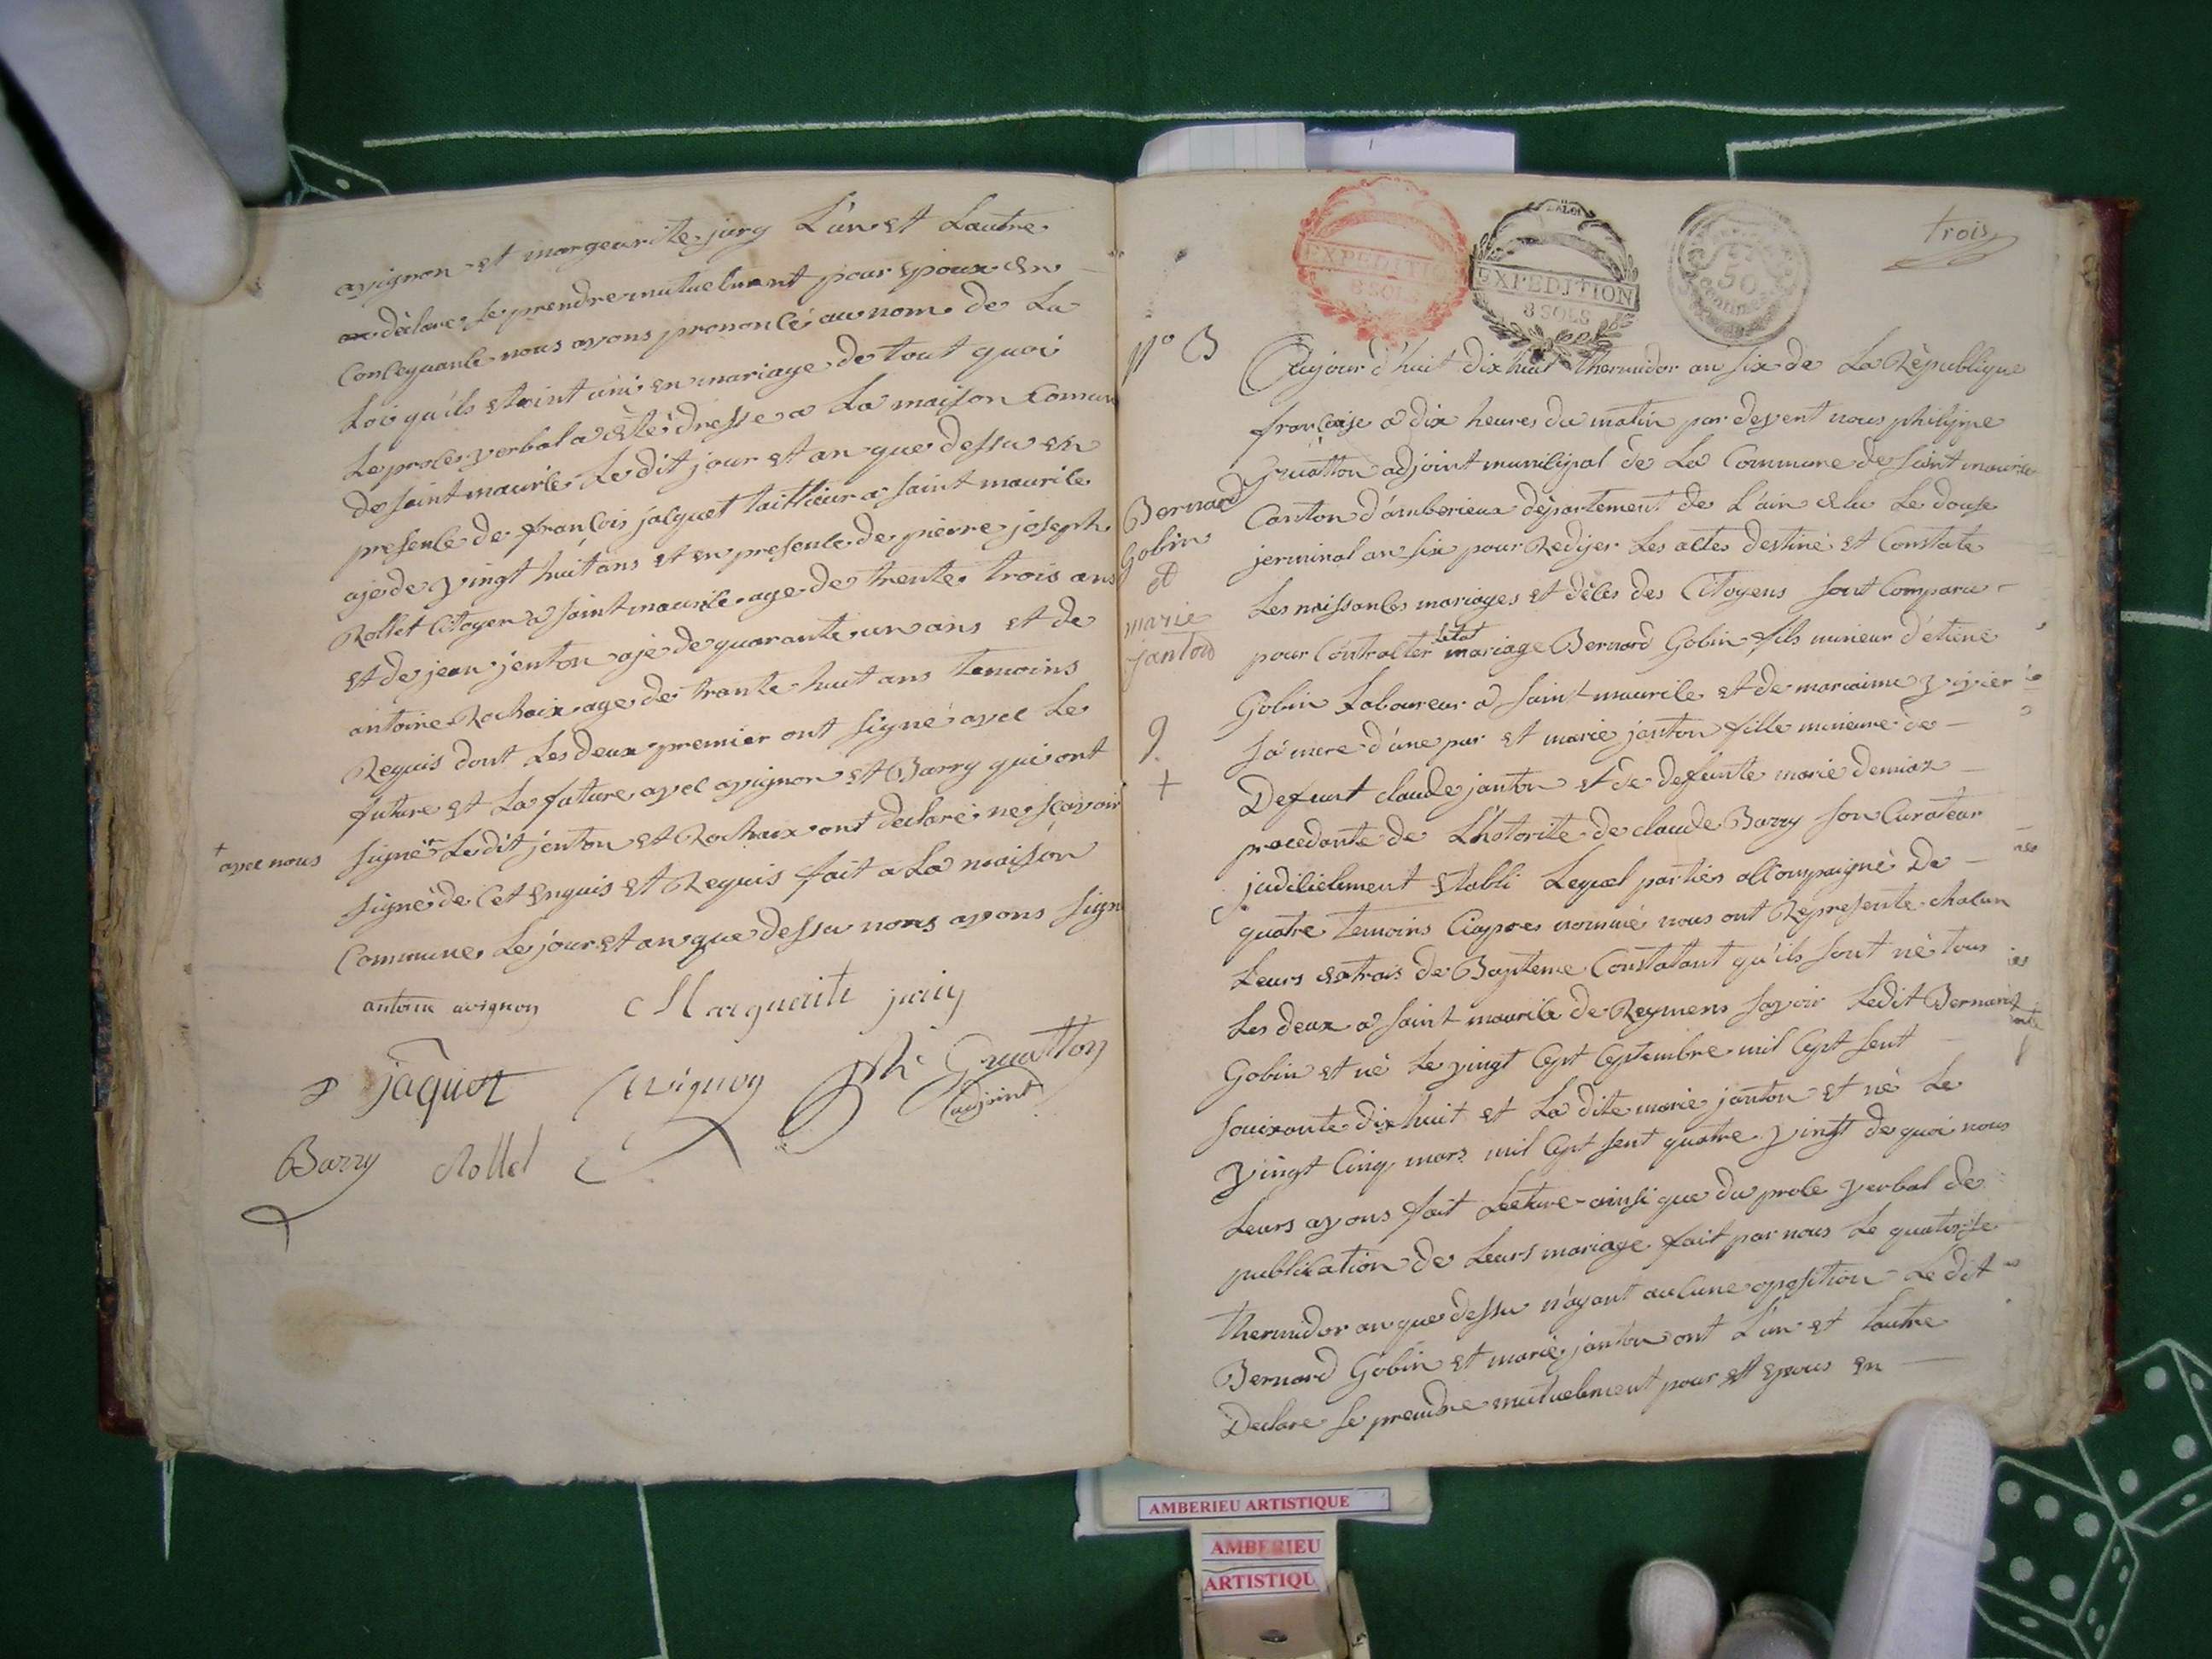 avignon et margeurite jury L'un et Lautre
déclare se prendre mutuelment pour Epoux En
Concequance nous avons prononcé au nom de La
Loi qu'ils etoint uni en mariage de tout quoi
Le proces verbal a Été dressé a La maison Comun
de saint maurice Le dit jour et an que dessu en
presence de françois jacquet taillieur a saint maurice
aje de vingt huit ans et en presence de pierre joseph
Rollet Citoyen a saint maurice age de trente trois ans
et de jean jenton aje de quarante un ans et de
antoine Rochaix age de trante huit ans temoins
Requis dont Les deux premier ont signé avec Le
future et La future avec avignon et Barry qui ont
+ avec nous
signé Ledit jenton et Rochaix ont declaré ne sçavoir
signé de Cet Enquis et Requis fait a La maison
Commune Le jour et an que dessu nous avons sign
antoine avignon Marguerite juriy
jaquet avignon phi Gruatton
adjoint
Barry Rollet
EXPEDITION
8 SOLS
EXPEDITION
8 SOLS
50
centimes
trois
N° 3
Aujour d'huit dix huit thermidor an six de La République
française a dix heures du matin par devent nous philipme
Gruatton adjoint municipal de La Commune de saint maurice
Canton d'amberieux département de L'ain elu Le douse
jerminal an six pour Redijer Les actes destiné et Constate
Les naissances mariages et décès des Citoyens sont Comparu
pour Contracter letat mariage Bernard Gobin fils mineur d'etiene
Gobin Laboureur a saint maurice et de mariaime vivier
sa mere d'une par et marie janton fille mineure de
Defunt claude janton et de defunte marie demiax
procedante de Lhotorité de claude Barry son Curateur
judicielement Etabli Lequel parties accompaigné De
quatre temoins Ciapres nommé nous ont Represente chacun
Leurs extrais de Bapteme Constatant qu'ils sont né tous
Les deux a saint maurice de Reymens savoir Ledit Bernard
Gobin et né Le vingt Cept Ceptembre mil Cept sent
souixante dix huit et La dite marie janton et né Le
vingt Cinq mars mil Cept sent quatre vingt de quoi nous
Leurs avons fait Lecture ainsi que du proce verbal de
publication de Leurs mariage fait par nous Le quatorse
thermidor an que dessu n'ayant aucune oposition Le dit
Bernard Gobin et marie janton ont L'un et Lautre
Declare se prendre mutuelment pour epous en
Bernard
Gobin
et
marie
janton
9
+
AMBERIEU ARTISTIQUE
AMBERIEU
ARTISTIQU